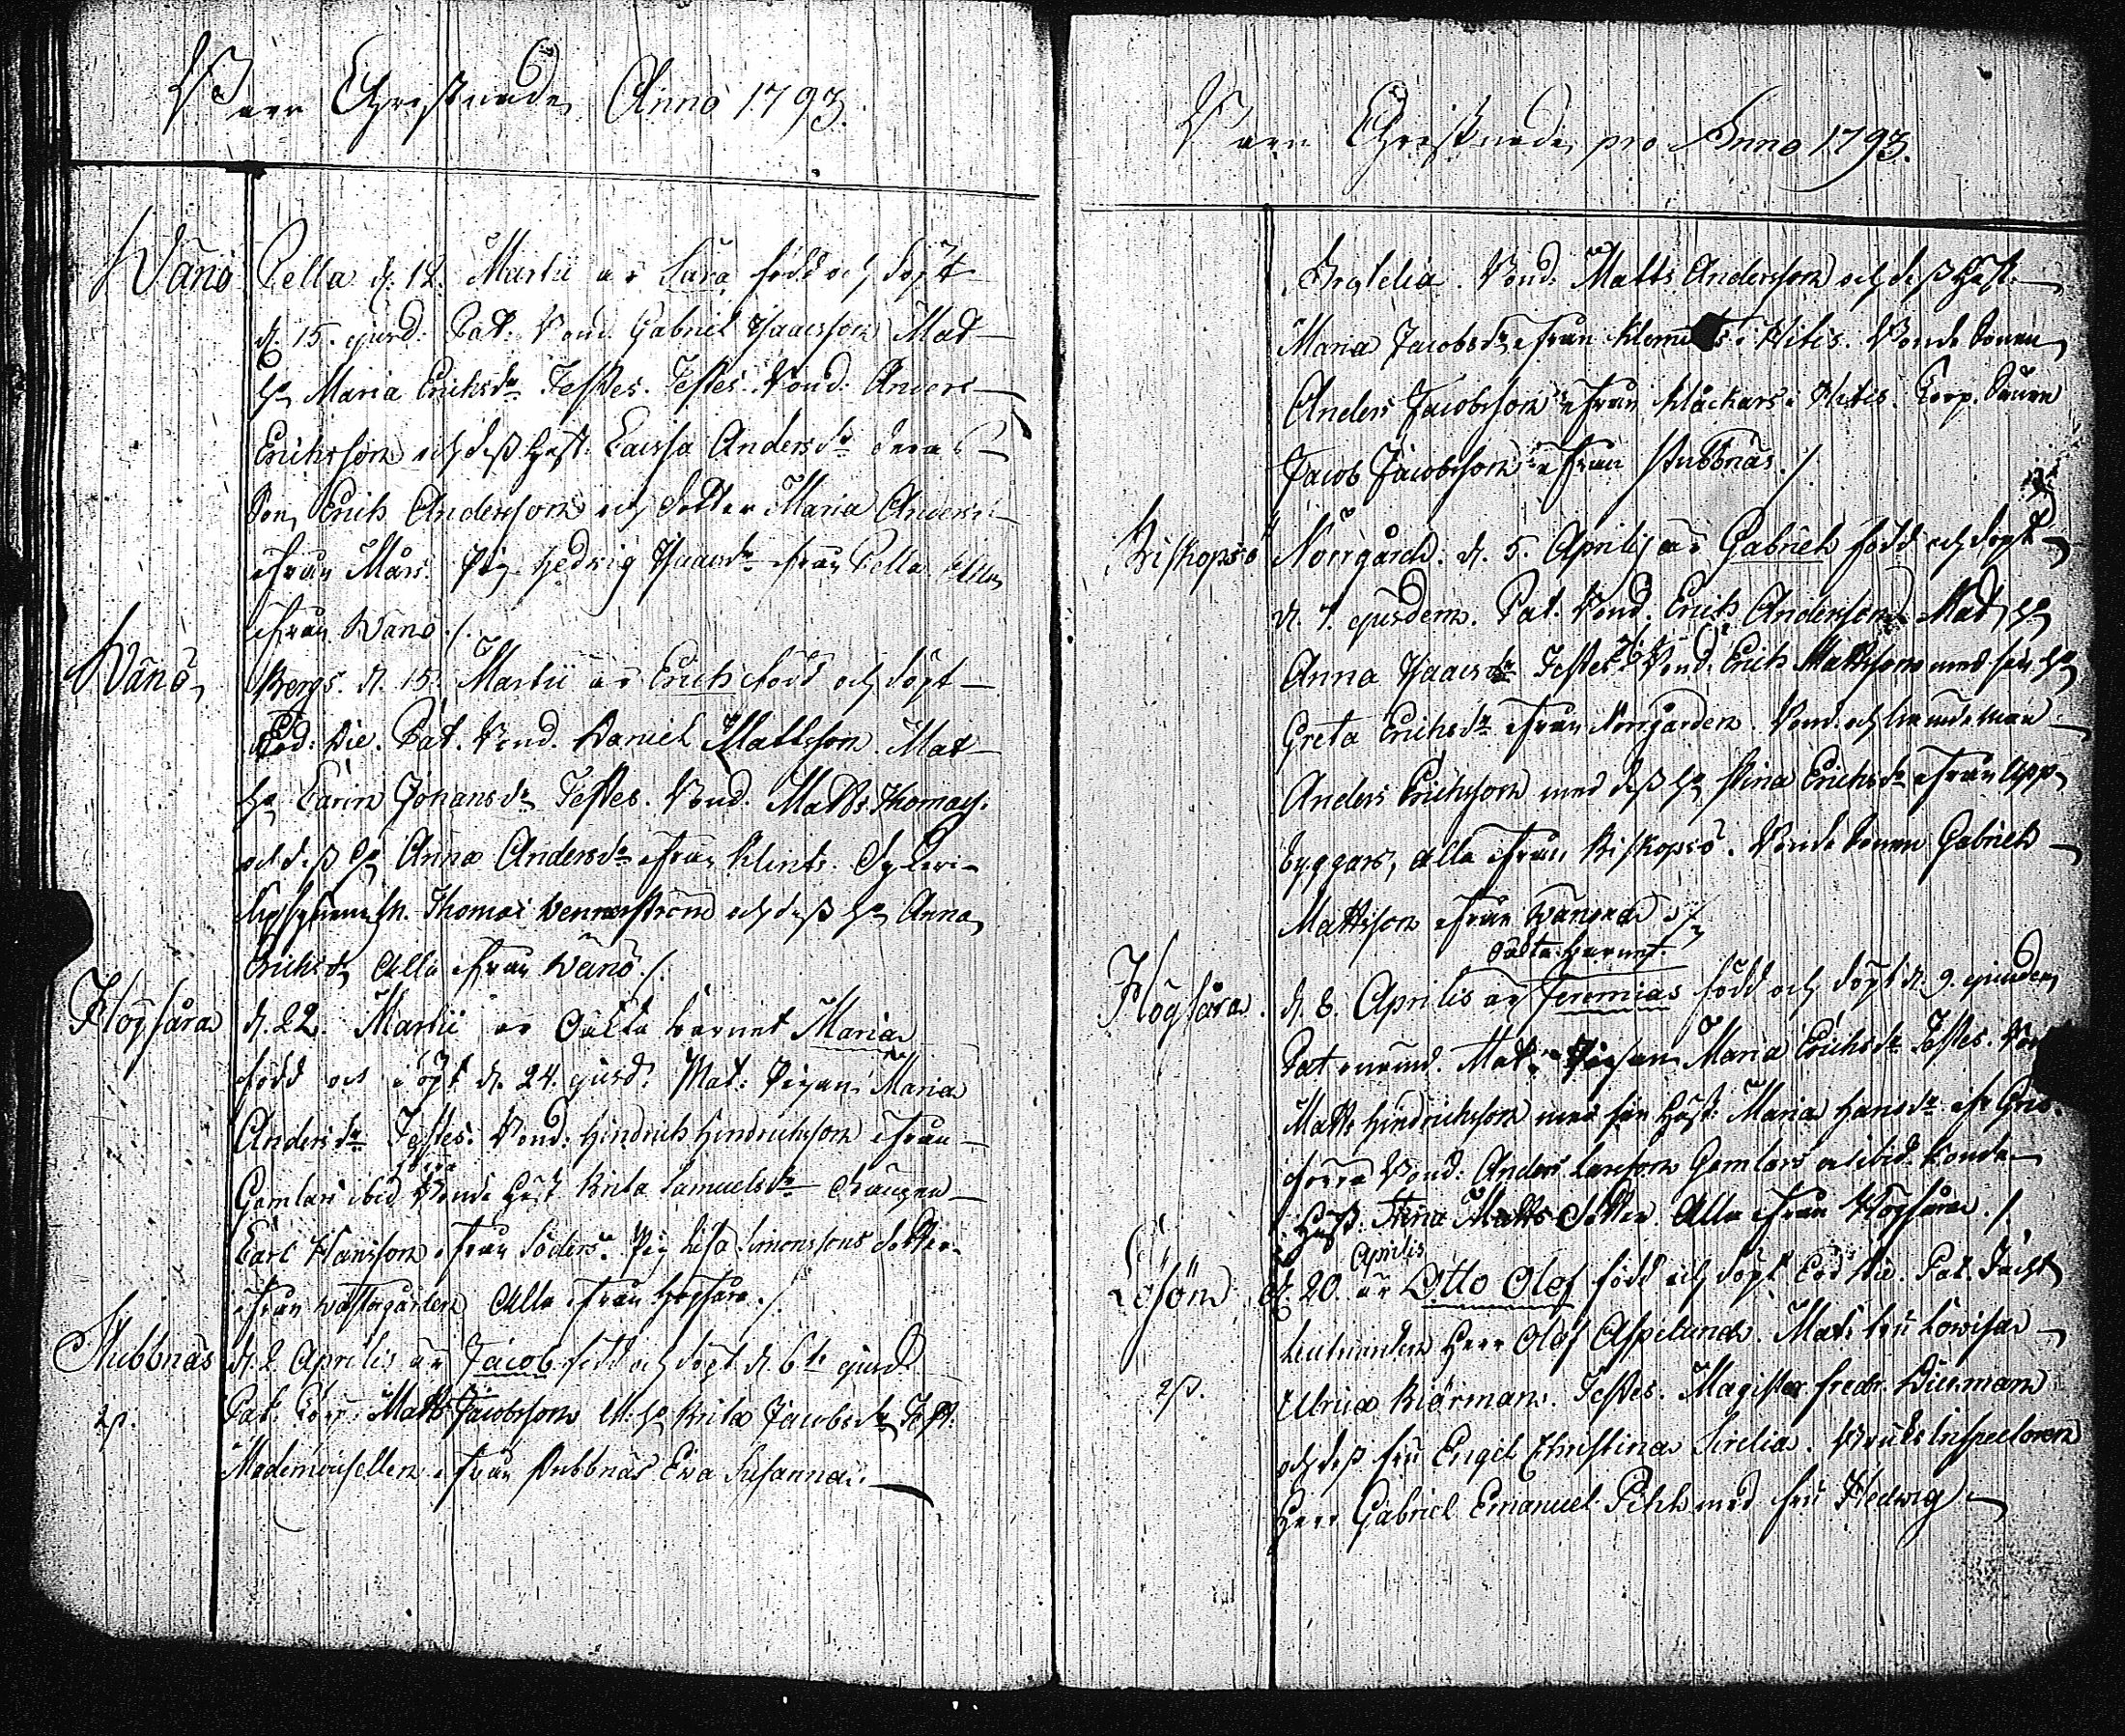 Barn Christnade Anno 1793.
Wänö Pella d. 12. Martii är Sara född och döpt
d. 15. ejusd. Pat. Bond. Gabriel Isaacsson Mat
h. Maria Eriksdr Testes. Testes. Bond. Anders
Eriksson och dess hust. Caisa Andersdr deras
Son Erich Andersson och dotter Maria Andersd
ifrån Mårs. Pig. Hedvig Isaacsdr ifrån Pella Alla
ifrån Wänö ./.
Wänö, Bergs. d. 15. Martii är Erich född och döpt
Eod. Die. Pat. Bond. Daniel Mattsson. Mat
h. Carin Johansdr Testes. Bond. Matts Thomass.
och dess h. Anna Andersdr ifrån Klints.
Thomas Wennerström och dess h. Anna
Eriksdr Alla ifrån Wänö ./.
Högsåra d. 22. Martii är Oäkta barnet Maria
född och döpt d. 24. ejusd. Mat. Pigan Maria
Andersdr Testes. Bond. Hindrich Hindrichsson ifrån
Gamlars ibid Bonde hust Brita Samuelsdr Drängen
Carl Hansson ifrån Söders. Pig Lisa Simonssons dotter
ifrån Westergården Alla ifrån Högsåra ./.
Stubbnäs d. 2 Aprilis är Jacob född och döpt d. 6te ejusd
Pat. Corp. Matts Jacobsson M. h. Brita Jacobsdr Test.
Mademoisellen ifrån Stubbnäs Eva Susanna
Barn Christnade pro Anno 1793.
Bond. Matts Andersson och dess hust.
Maria Jacobsdr ifrån Klemets i Hitis. Bonde Sonen
Anders Jacobsson ifrån Klåckars i Hitis. Corp. Sonen
Jacob Jacobsson ifrån Stubbnäs ./.
Biskopsö Norrgård. d. 5. Aprilis är Gabriel född och döpt
d. 7. ejusdem. Pat. Bond. Erich Andersson Mat h.
Anna Isaacsdr Testes Bond. Erich Mattsson med sin h.
Greta Erichsdr ifrån Norrgården. Bond. och
Anders Erichsson med dess h. Stina Erichsdr ifrån Upp-
byggars, alla ifrån Biskopsö. Bonde Sonen Gabriel
Mattsson ifrån Wänö
Oäkta barnet.
Högsåra. d. 8. Aprilis är Jeremias född och döpt d. 9. ejusdem
Pat Mat. Pigan Maria Erichsdr Testes.
Matts Hindrichsson med sin Hust: Maria Hansdr
Bond: Anders Larsson Gamlars och ibid. Bonde
Hust. Stina Matts dotter. Alla ifrån Högsåra ./.
Aprilis
Löfön d. 20. är Otto Olof född och döpt Eod die. Pat.
Lieutnanten Herr Olof Aspelund. Mat. fru Lovisa
Ulrica Biörman. Testes. Magister Fredr.
och dess fru Engel Christina Bruks Inspectoren
Herr Gabriel Emanuel Pihl med fru Hedwig